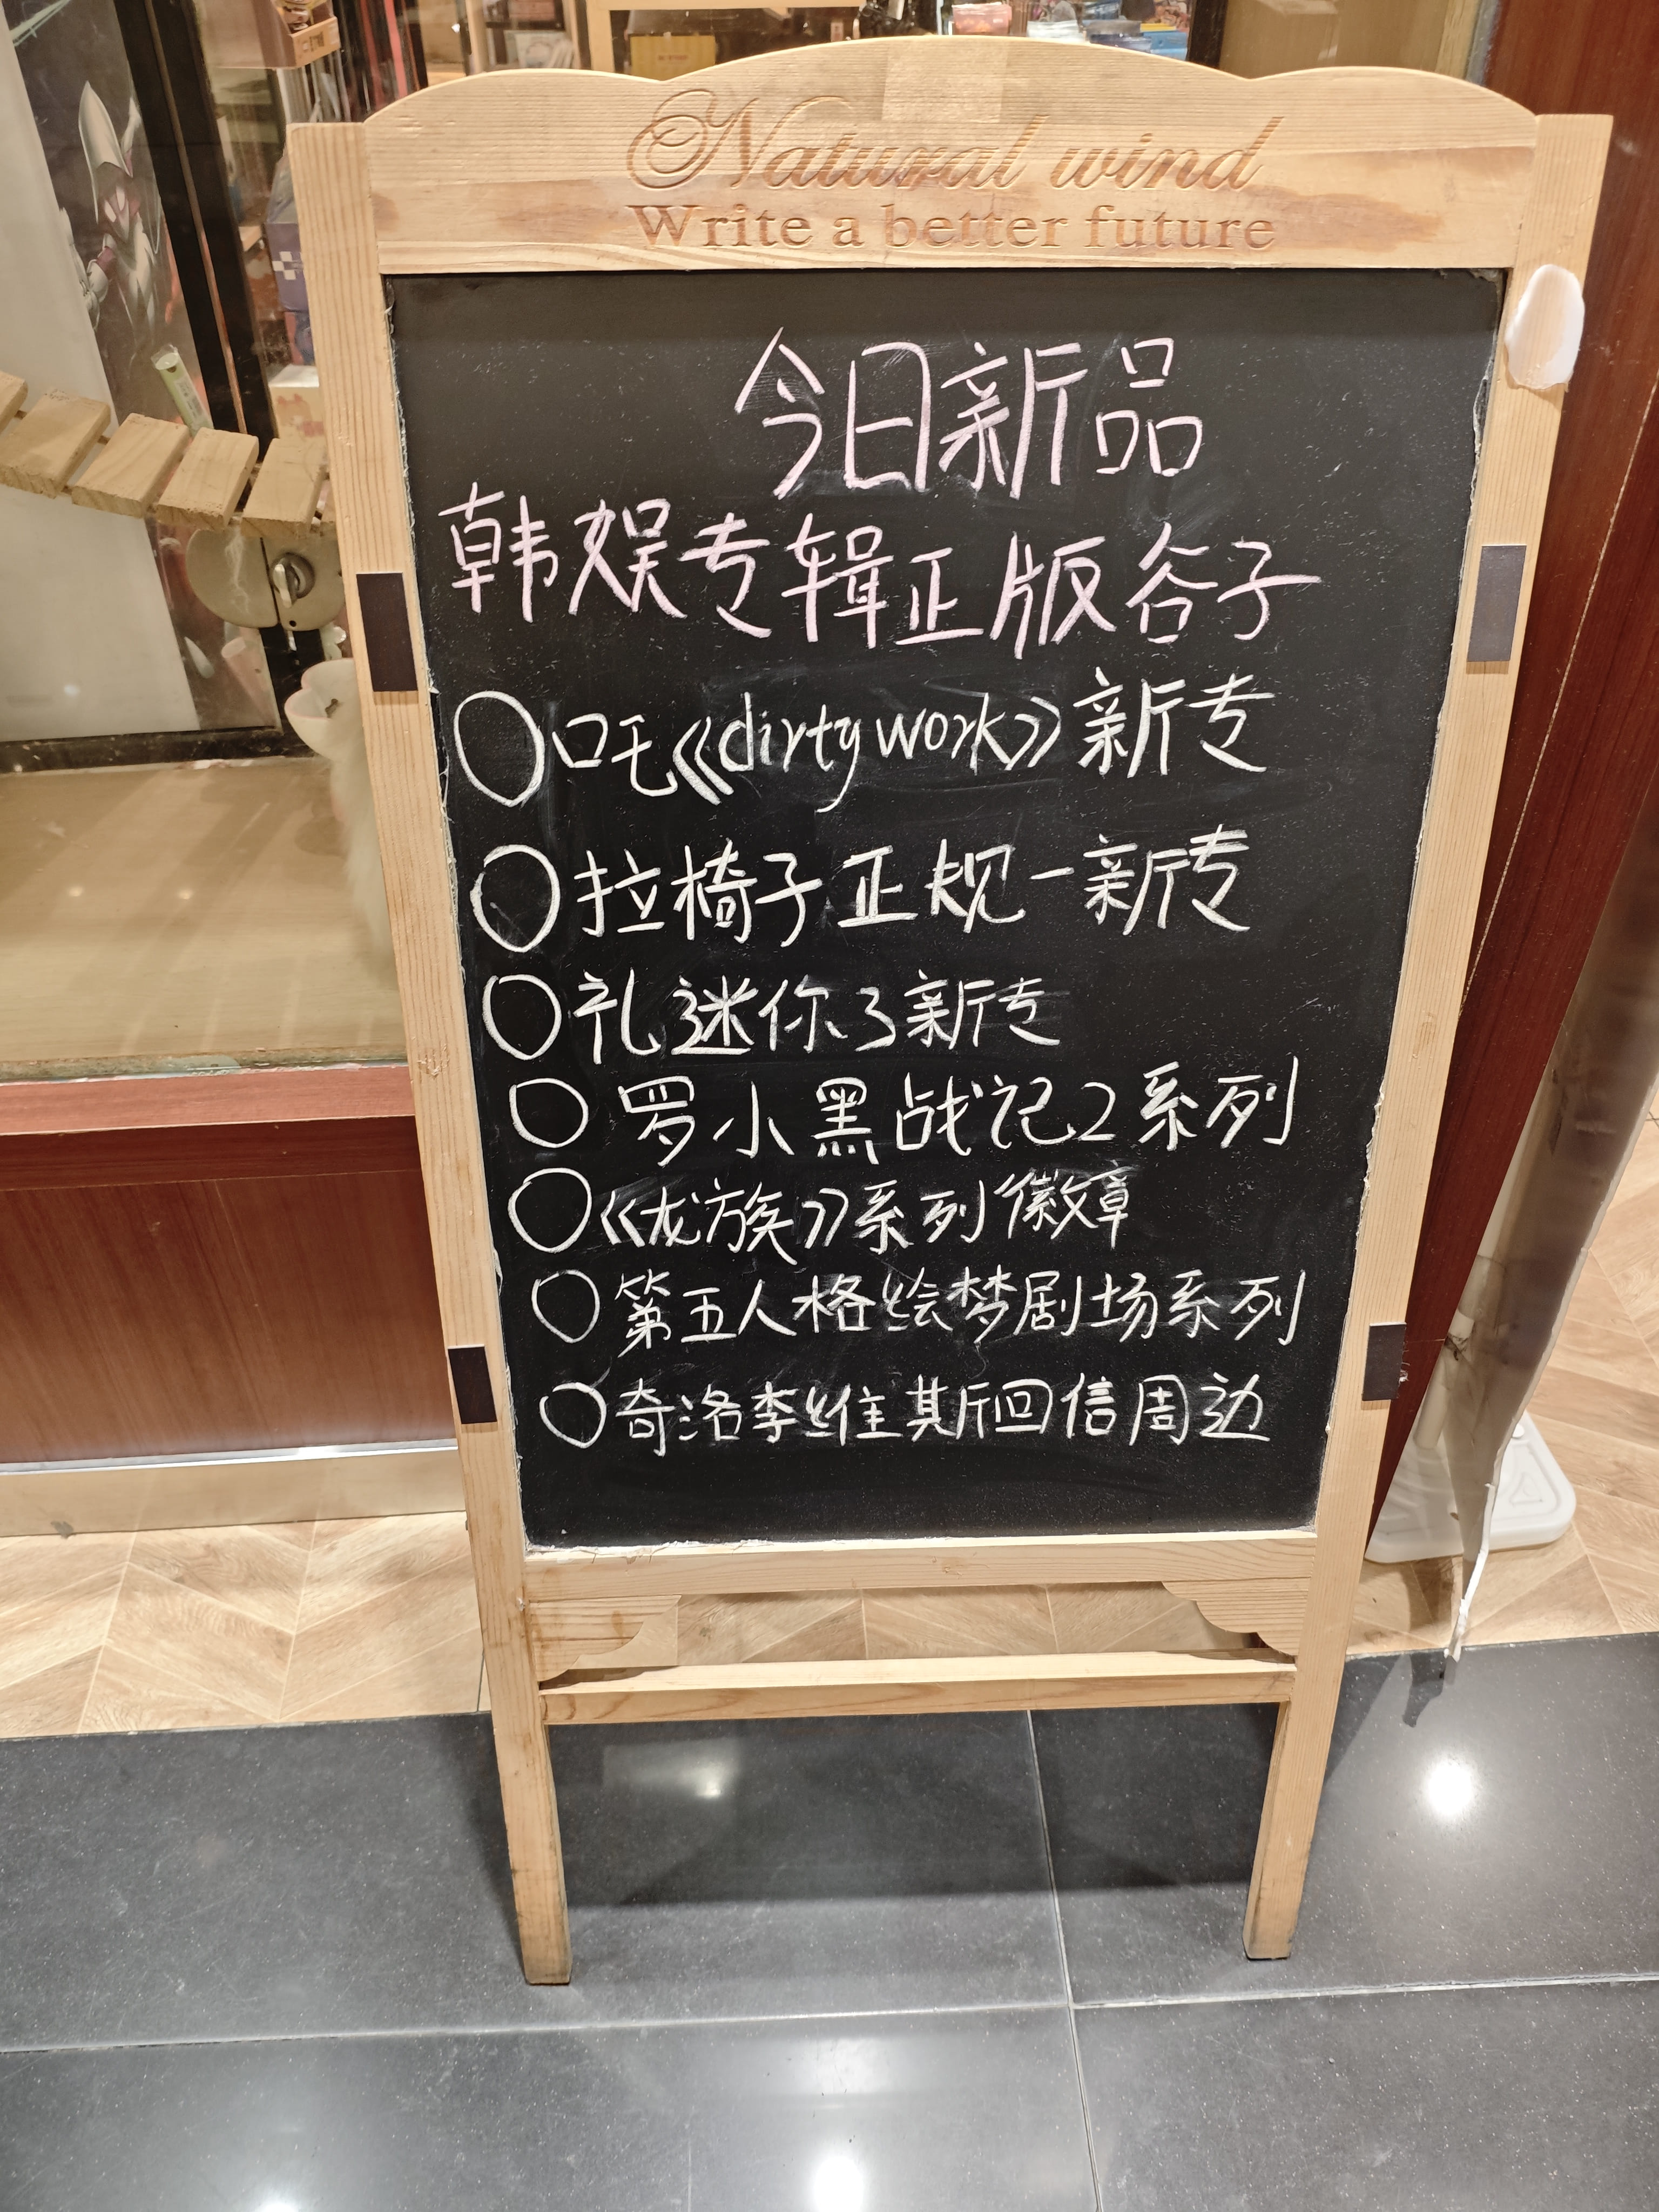 Natural wind
Write a better future
今日新品
韩娱专辑正版谷子
○口毛《dirty work》新专
○拉椅子正规一新专
○礼迷你3新专
○罗小黑战记2系列
○《龙族》系列徽章
○第五人格绘梦剧场系列
○奇洛李维斯回信周边